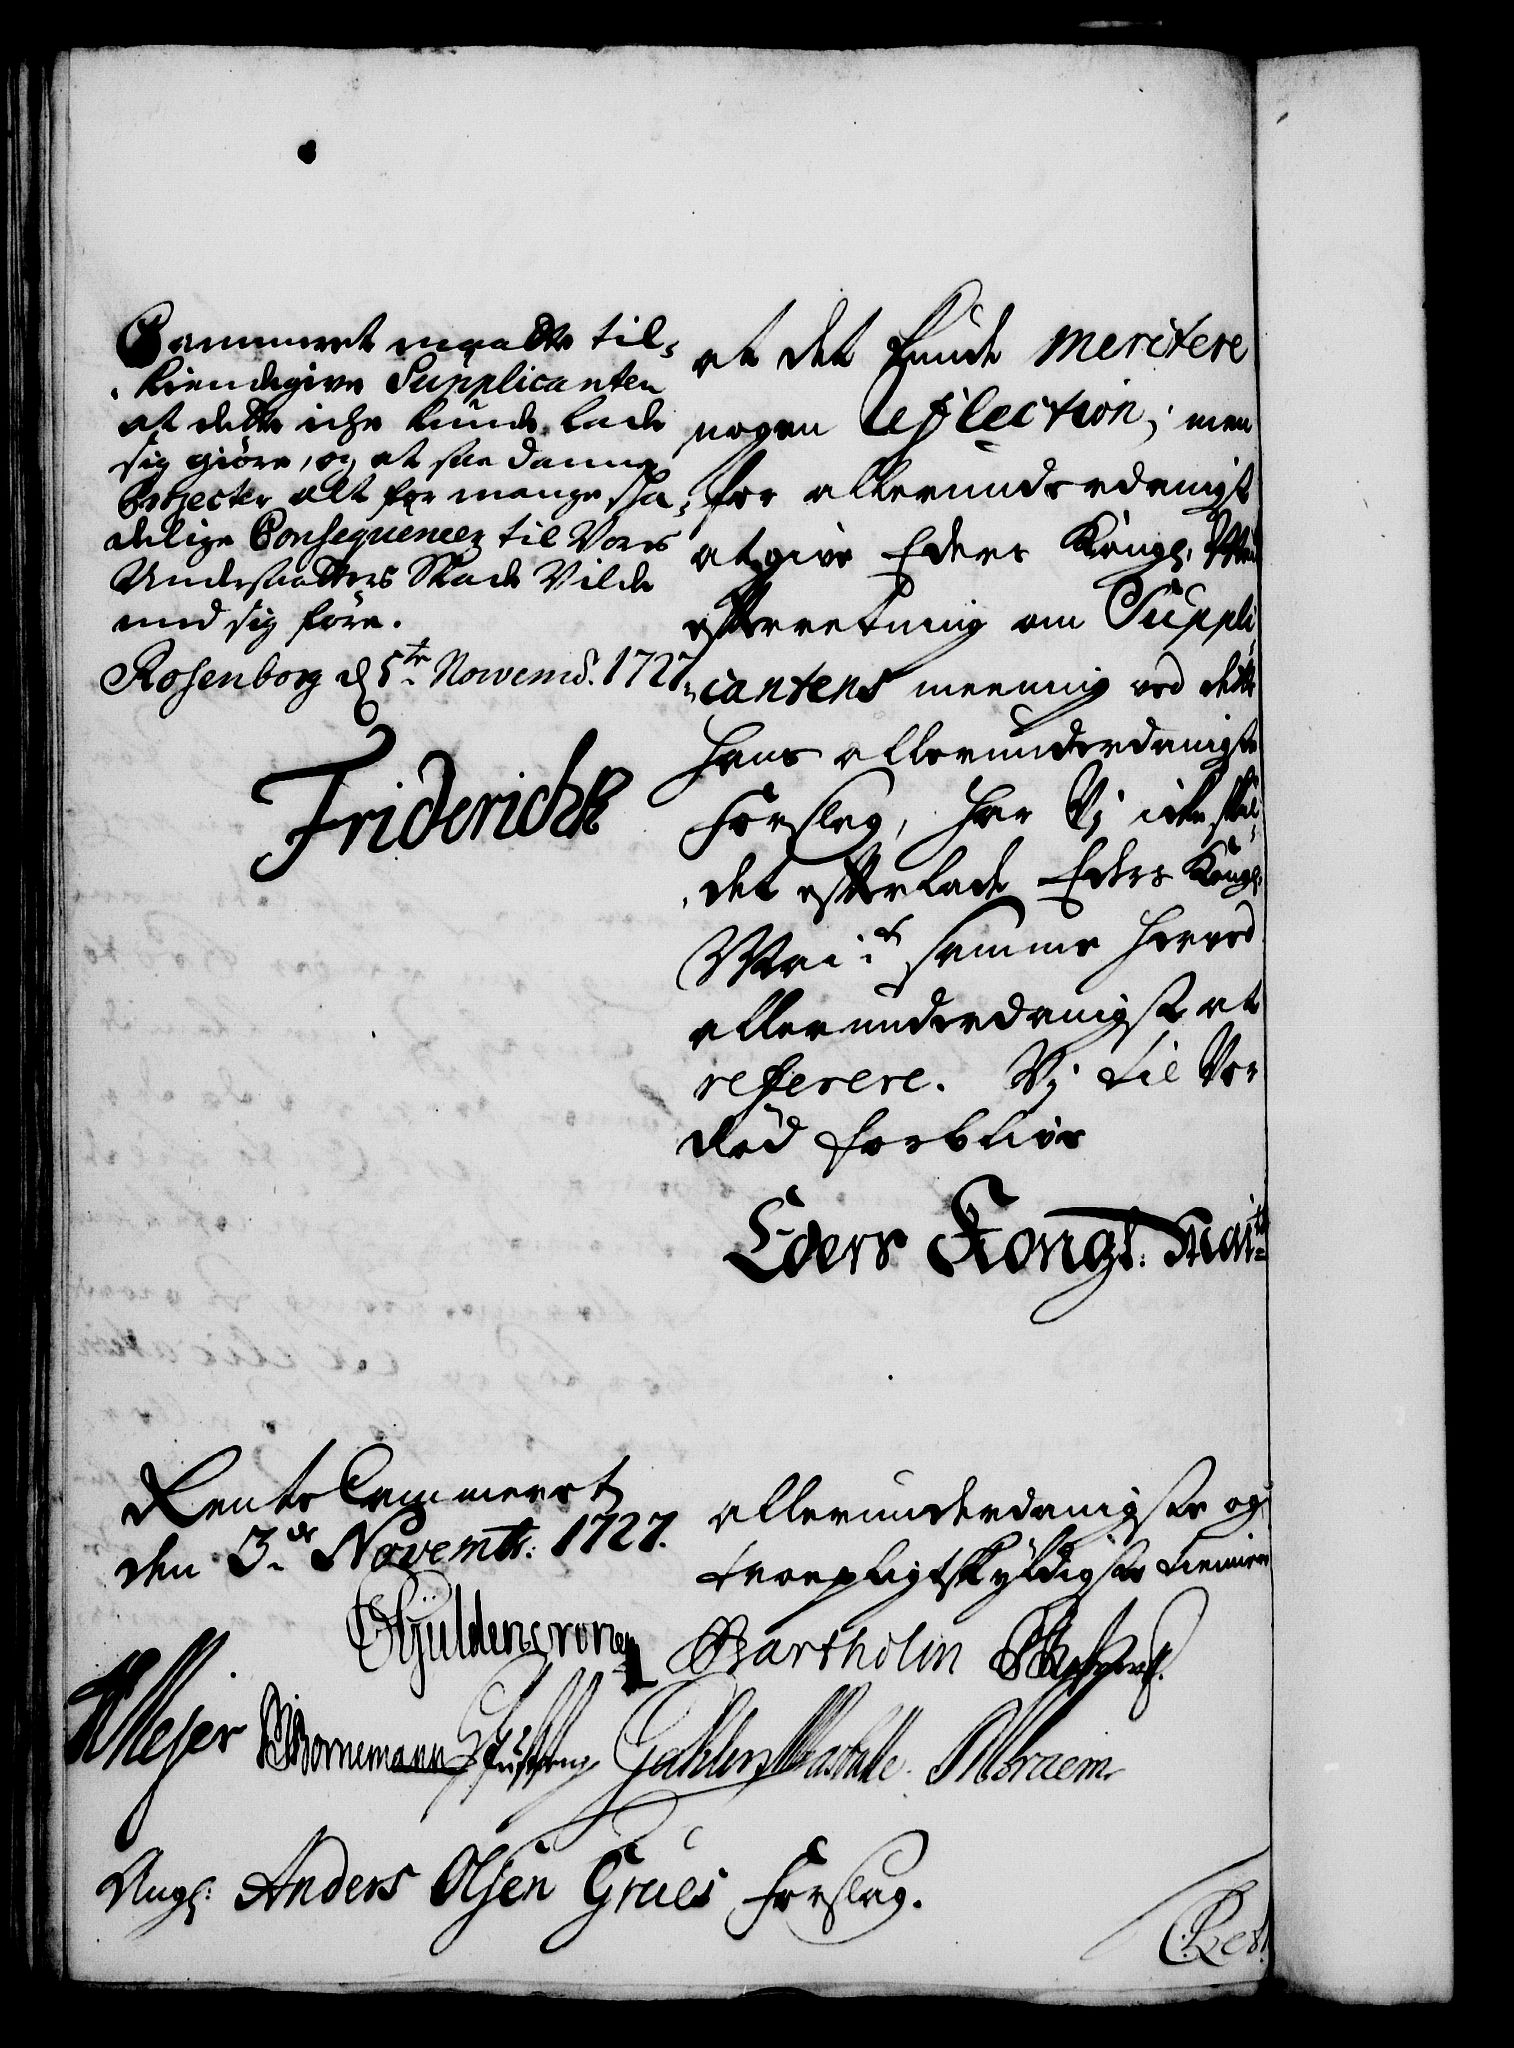 Cammeret maatte til-
kiendegive Supplicanten
at dette iche kunde lade
sig giöre, og at saadanne
Projecter alt for mange ska-
delige Consequencer til Vores
Undersaatters Skade Vilde
med sig före.
Rosenborg d 5te Novemb. 1727
Friderich R
at det kunde meritere
nogen reflection; men
for allerunderdanigst
at give Eders Kongl. Mait
efterretning om Suppli-
cantens meening ved dette
hans allerunderdanigste
Forslag, har Vj icke skul-
det efterlade Eders Kongl.
Mait samme herved
allerunderdanigst at
referere. Vj til Vor
död forblive
Eders Kongl: Maits
Rente Cammeret
den 3de Novembr: 1727.
allerunderdanigste og
troepligtskyldigste tienere
Gyldencrone Bartholin
Meier Bornemann
Angl: Anders Olsen Grües Forslag.